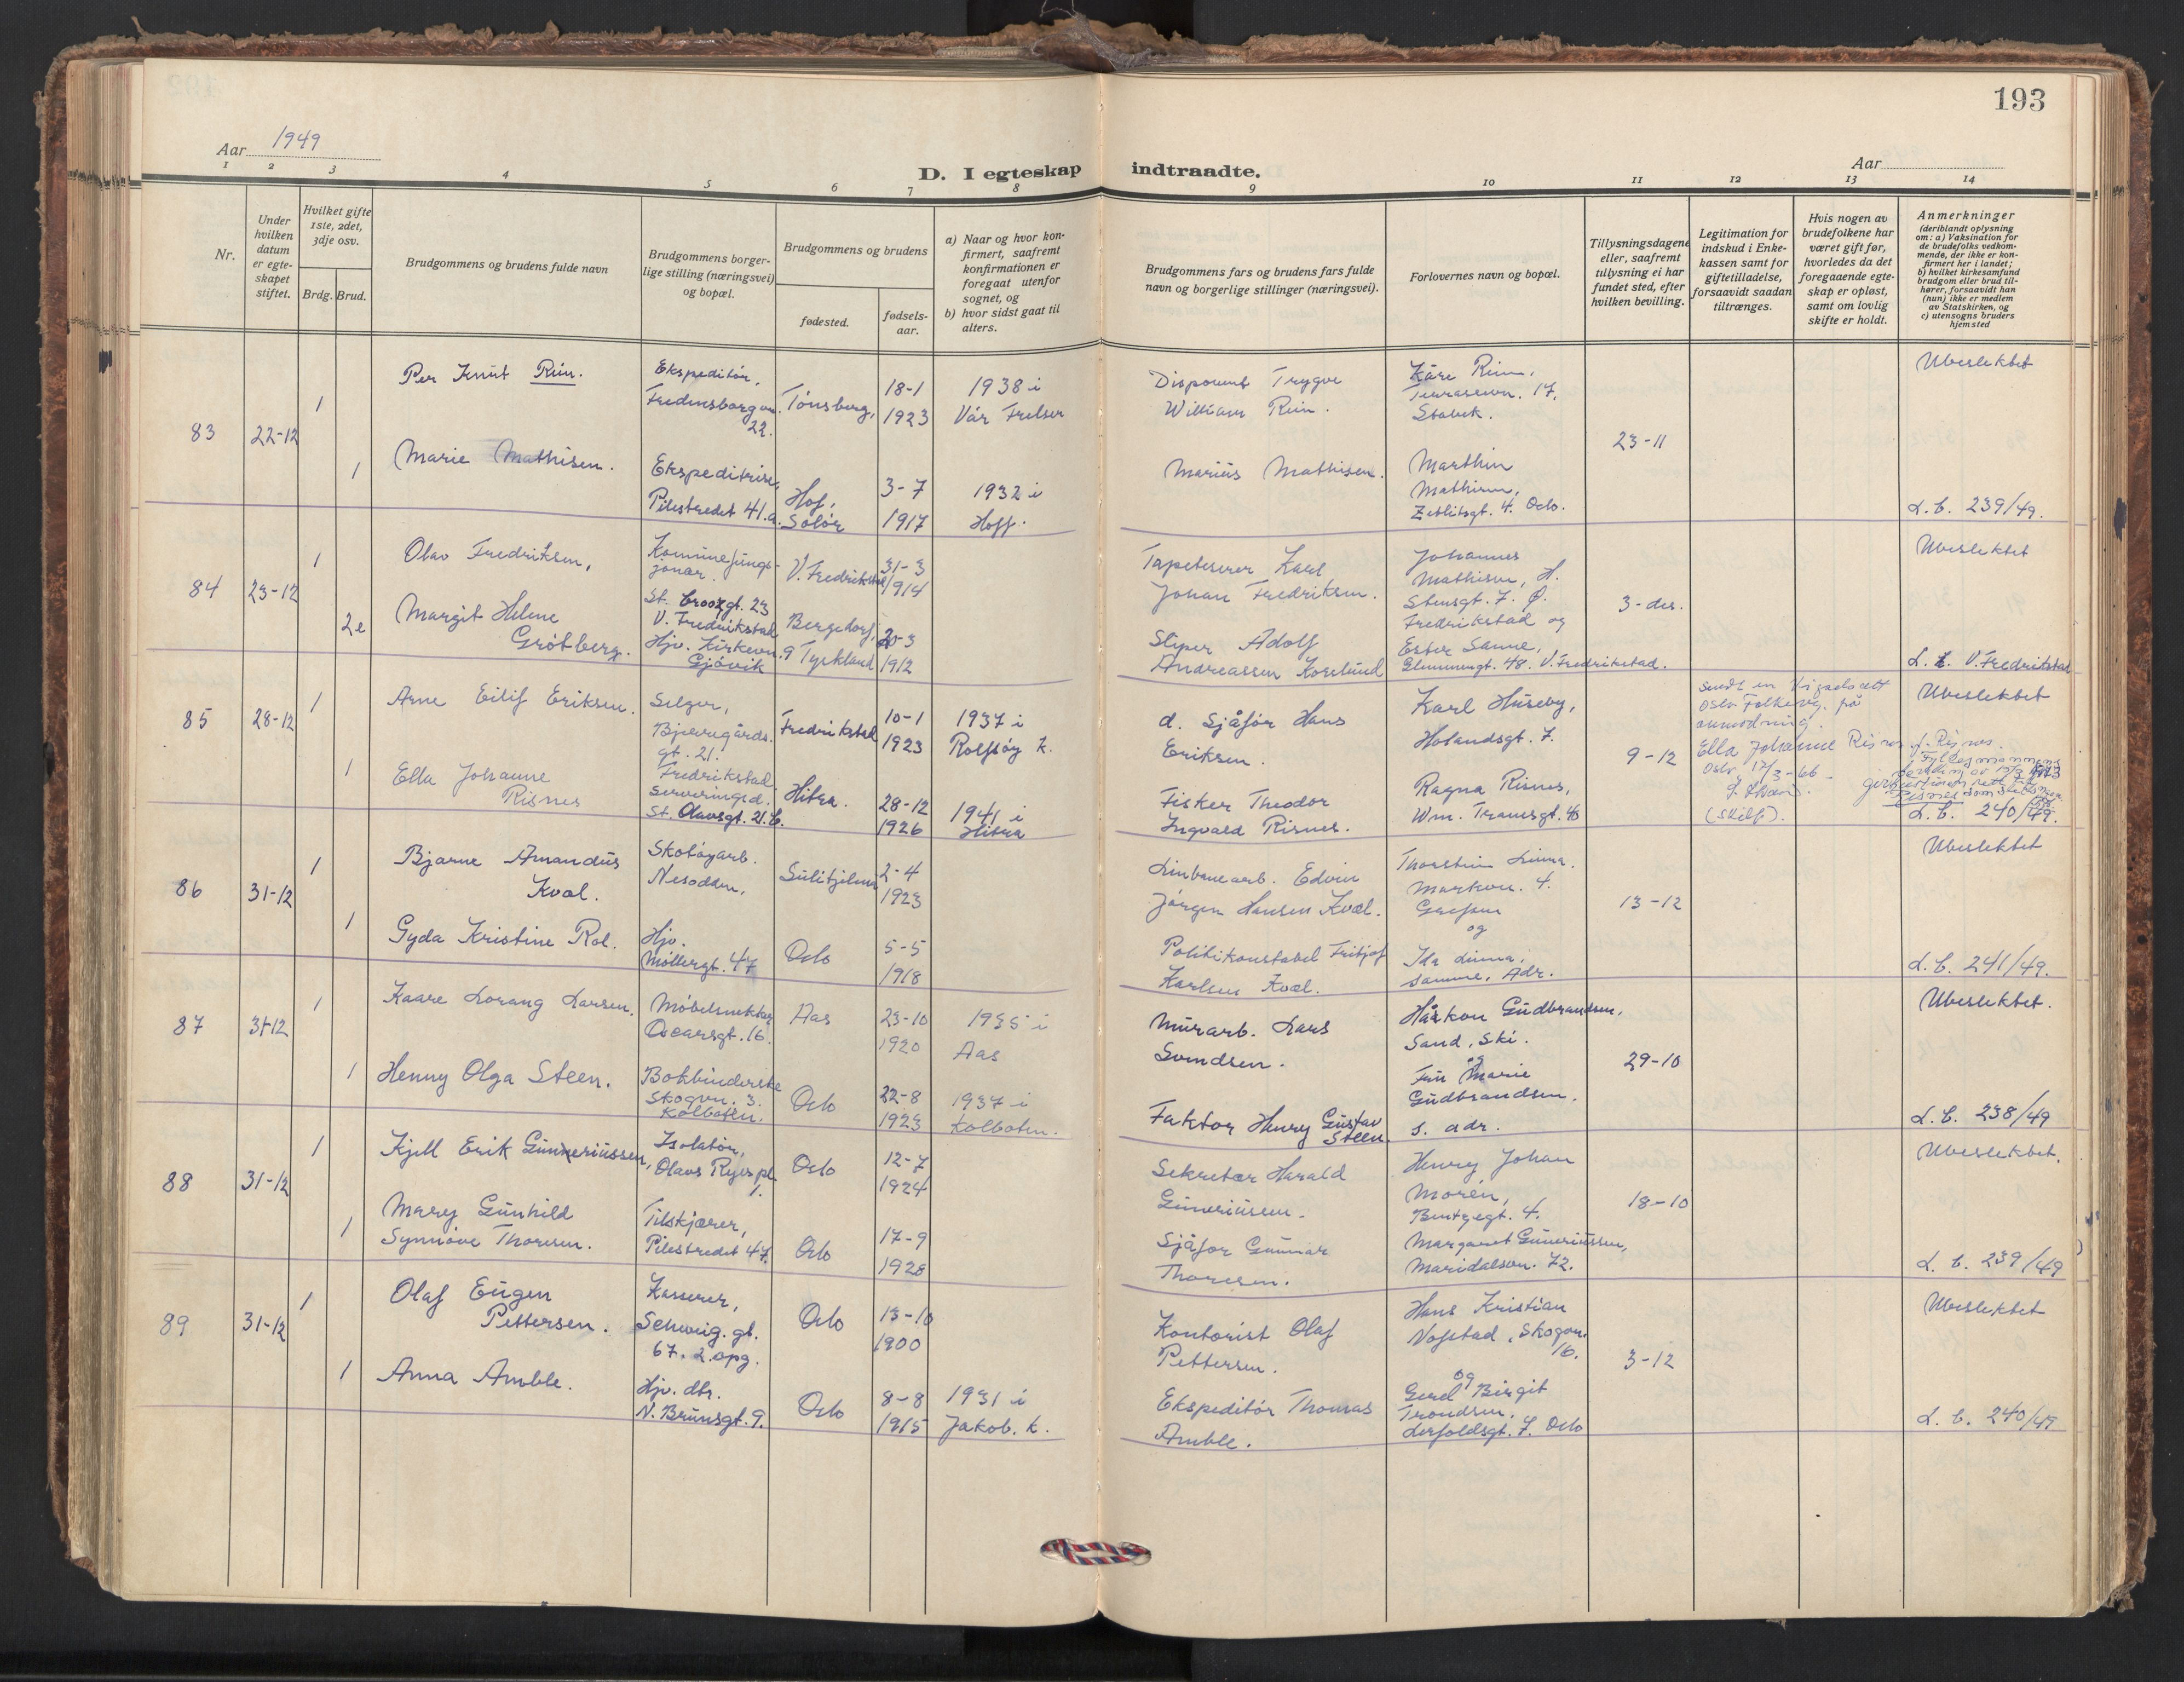 193
Aar 1949
Aar
D. I egteskap indtraadte.
1 2 3 4 5 6 7 8 9 10 11 12 13 14
Nr.
Under hvilken datum er egte-skapet stiftet.
Hvilket gifte 1ste, 2det, 3dje osv.
Brdg. Brud.
Brudgommens og brudens fulde navn
Brudgommens borger-lige stilling (næringsvei) og bopæl.
Brudgommens og brudens
fødested.
fødsels-aar.
a) Naar og hvor kon-firmert, saafremt konfirmationen er foregaat utenfor sognet, og
b) hvor sidst gaat til alters.
Brudgommens fars og brudens fars fulde navn og borgerlige stillinger (næringsvei).
Forlovernes navn og bopæl.
Tillysningsdagene eller, saafremt tillysning ei har fundet sted, efter hvilken bevilling.
Legitimation for indskud i Enke-kassen samt for giftetilladelse, forsaavidt saadan tiltrænges.
Hvis nogen av brudefolkene har været gift før, hvorledes da det foregaaende egte-skap er opløst, samt om lovlig skifte er holdt.
Anmerkninger
(deriblandt oplysning om: a) Vaksination for de brudefolks vedkom-mende, der ikke er kon-firmert her i landet; b) hvilket kirkesamfund brudgom eller brud til-hører, forsaavidt han (hun) ikke er medlem av Statskirken, og c) utensogns bruders hjemsted
83 22-12
1 Per Knut Riin. Ekspeditør, Fredensborgvn. 22. Tønsberg, 18-1 1923 1938 i Vår Frelser
Disponent Trygve William Riin. Kåre Riin, Terrassevn. 17, Stabek. 23-11 Ubeslektet
1 Marie Mathisen. Ekspeditrise, Pilestredet 41.a. Hof, Solør 3-7 1917 1932 i Hoff.
Marius Mathisen. Marthin Mathisen, Zetlitzgt. 4. Oslo. L.b. 239/49.
84 23-12
1 Olav Fredriksen, Kommunefunge-jonær. St. Croozgt. 23 V. Fredrikstad V. Fredrikstad 31-3 1914
Tapetserer Karl Johan Fredriksen. Johannes Mathisen, H. Stensgt. 7. Ø. Fredrikstad og 3-des. Ubeslektet
2e Margit Helene Grötberg. Hjv. Kirkevn. 9 Gjøvik Bergedorf, Tyskland 20-3 1912
Sliper Adolf Andreassen Koselund Ester Sanne, Glemmengt. 48. V. Fredrikstad. L. b. V. Fredrikstad
85 28-12
1 Arne Eilif Eriksen. Selger, Bjerregårds. gt. 21. Fredrikstad 10-1 1923 1937 i Rolfsøy k.
d. Sjåfør Hans Eriksen. Karl Huseby, Holandsgt. 7. 9-12 Ubeslektet
Sendt en Vigselsatt Oslo Folkereg. på anmodning.
Ella Johanne Risnes f. Risnes.
Oslo 17/3-66
(skilt).
1 Ella Johanne Risnes Fredrikstad Serveringsd. St. Olavsgt. 21.b. Hitra. 28-12 1926 1941 i Hitra
Fisker Theodor Ingvald Risnes. Ragna Risnes, Wm. Tranesgt. 46 L.b. 240/49.
86 31-12
1 Bjarne Amandus Kval. Skotøyarb. Nesodden, Sulitjelma 2-4 1923
Linbanearb. Edvin Jørgen Hansen Kval. Thorstein Linna. Markvn. 4. Grefsen og 13-12 Ubeslektet
1 Gyda Kristine Rol. Hjv. Møllergt. 47 Oslo 5-5 1918
Politikonstabel Fritjof Karlsen Kval. Ida Linna, samme, Adr. L.b. 241/49.
87 31-12
1 Kaare Lorang Larsen. Møbelsnekker Oscarsgt. 16. Aas 23-10 1920 1935 i Aas
Murarb. Lars Svendsen. Håkon Gudbrandsen, Sand, Ski. og 29-10 Ubeslektet.
1 Henny Olga Steen. Bokbinderske Skogvn. 3. Kolbotn. Oslo 22-8 1923 1937 i Kolboten.
Faktor Henry Gustav Steen. Fru Marie Gudbrandsen, s. adr. L.b. 238/49
88 31-12
1 Kjell Erik Gunneriussen, Isolatør, Olavs Ryes pl. 1. Oslo 12-7 1924
Sekretær Harald Guneriussen. Henry Johan Morén, Bentzegt. 4. 18-10 Ubeslektet.
1 Mary Gunhild Synnøve Thoresen. Tilskjærer, Pilestredet 47. Oslo 17-9 1928
Sjåfør Gunnar Thoresen. Margaret Guneriussen, Maridalsvn. 72. L. b. 239/49
89 31-12
1 Olaf Eugen Pettersen. Kasserer, Schweig. gt. 67. 2.opg. Oslo 13-10 1900
Kontorist Olaf Pettersen. Hans Kristian Nofstad, Skogvn. 16. og 3-12 Ubeslektet
1 Anna Amble. Hjv. dtr. N. Brunsgt. 9. Oslo 8-8 1915 1931 i Jakob. k.
Ekspeditør Thomas Amble. Gerd Birgit Trondsen, Lerfoldsgt. 7. Oslo L. b. 240/49